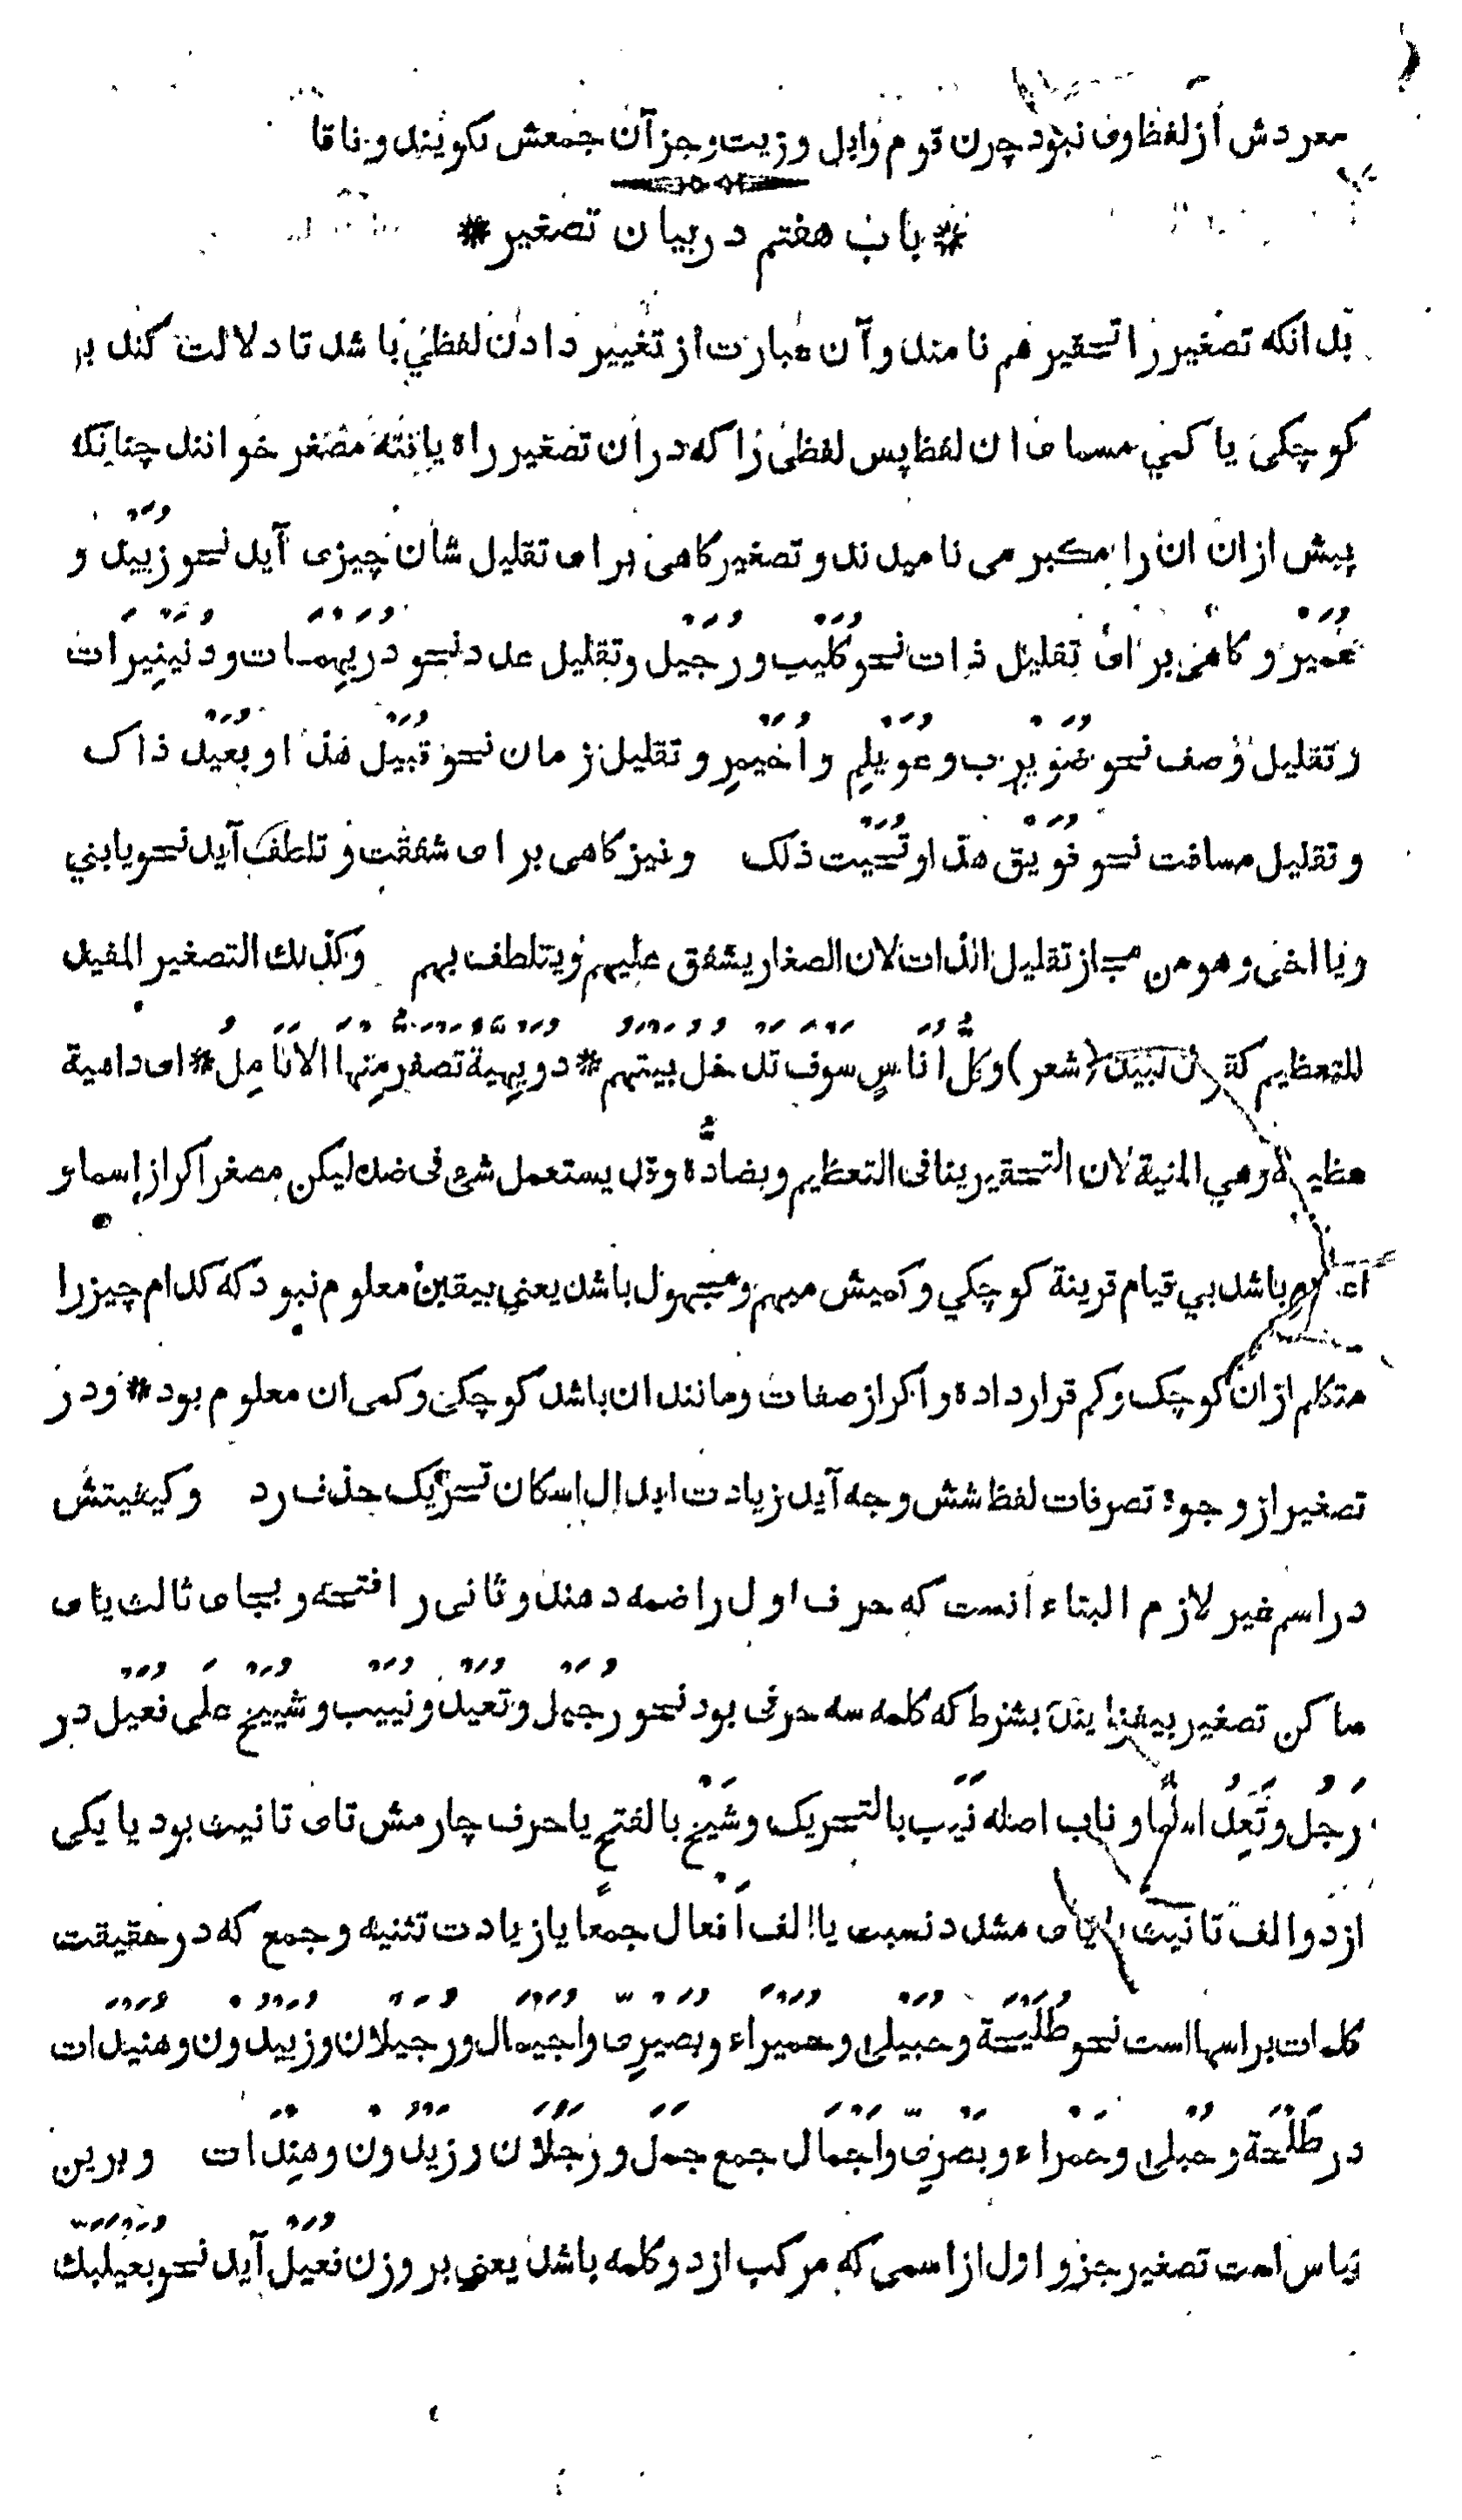 مفردش از لفظ وی نبود چون قوم وابل و زیت و جز آن جمعش نکویند وفاقا
* باب هفتم در بیان تصغیر *
بدانکه تصغیر را تحقیر هم نامند و آن عبارت از تغییر دادن لفظی باشد تا دلالت کند بر
کوچکی یا کمی مسمای ان لفظ پس لفظی را که دران تصغیر راه یافته مصغر خوانند چنانکه
پیش ازان ان را مکبر می نامیدند و تصغیر کاهی برای تقلیل شان چیزی آید نحو زُیَیْدٌ و
عُمَیْرٌ و کاهی برای تقلیل ذات نحو کُلَیْبٌ و رُجَیْلٌ و تقلیل عدد نحو دُرَیْهِمَاتٌ و دُنَیْنِیْرَاتٌ
و تقلیل وصف نحو ضُوَیْرِبٌ و عُوَیْلِمٌ و اُحَیْمِرُ و تقلیل زمان نحو قُبَیْلَ هذا او بُعَیْدَ ذاک
و تقلیل مسافت نحو فُوَیْقَ هذا او تُحَیْتَ ذلک و نیز کاهی برای شفقت و تلطف آید نحو یا بنی
و یا اخی و هو من مجاز تقلیل الذات لان الصغار یشفق علیهم و یتلطف بهم وکذلك التصغیر المفید
للتعظیم کقول لبید (شعر) وَکُلُّ اُنَاسٍ سَوْفَ تَدْخُلُ بَیْتَهُمْ * دُوَیْهِیَةٌ تَصْفَرُّ مِنْهَا الاَنَامِلُ * ای داهیة
عظیمة وهی المنیة لان التحقیر ینافی التعظیم و یضادّه وقد یستعمل شیء فی ضده لیکن مصغر اکر از اسماء
اعلام باشد بی قیام قرینة کوچکی و کمیش مبهم و مجهول باشد یعنی بیقین معلوم نبود که کدام چیز را
متکلم ازان کوچک و کم قرار داده و اکر از صفات و مانند ان باشد کوچکی و کمی ان معلوم بود * و در
تصغیر از وجوه تصرفات لفظ شش وجه آید زیادت ابدال اسکان تحریک حذف رد و کیفیتش
در اسم غیر لازم البناء انست که حرف اول را ضمه دهند و ثانی را فتحه و بجای ثالث یای
ساکن تصغیر بیفزایند بشرط که کلمه سه حرفی بود نحو رُجَیْلٌ و نُعَیْلٌ و نُیَیْبٌ و شُیَیْخٌ عَلَی فُعَیْلٌ در
رَجُلٌ و و ناب اصله نَیَبٌ بالتحریک و شَیْخٌ بالفتح یا حرف چارمش تای تانیث بود یا یکی
از دو الف تانیث یا یای مشدد نسبت یا الف اَفْعال جمعًا یا زیادت تثنیه و جمع که در حقیقت
کلمات براسها است نحو طُلَیْحَةُ و حُبَیْلٰی و حُمَیْرَاءُ و بُصَیْرِیٌّ و اُجَیْمَالٌ و رُجَیْلَانِ و زُیَیْدُوْنَ و هُنَیْدَاتٌ
در طَلْحَةُ و حُبْلٰی و حَمْرَاءُ و بَصْرِیٌّ و اَجْمَالٌ جمع جَمَلٌ و رَجُلَانِ و زَیْدُوْنَ و هِنْدَاتٌ و برین
قیاس است تصغیر جزو اول از اسمی که مرکب از دو کلمه باشد یعنی بر وزن فُعَیْلٌ آید نحو بُعَیْلَبَكَّ